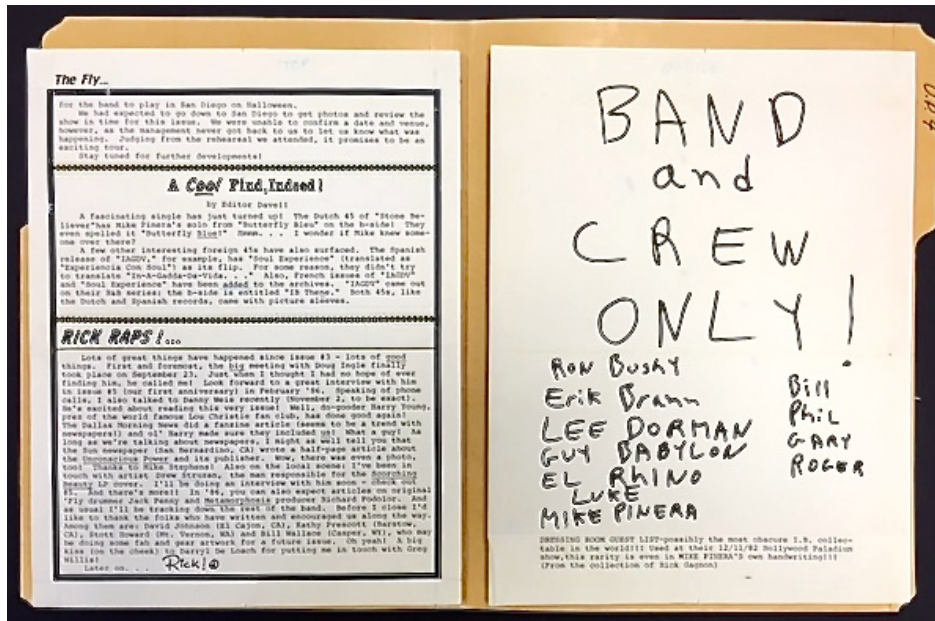 The Fly...
for the band to play in San Diego on Halloween.
We had expected to go down to San Diego to get photos and review the
show in time for this issue. We were unable to confirm a date and venue,
however, as the management never got back to us to let us know what was
happening. Judging from the rehearsal we attended, it promises to be an
exciting tour.
Stay tuned for further developments!
A Cool Find, Indeed!
by Editor Dave!!
A fascinating single has just turned up! The Dutch 45 of "Stone Be-
liever"has Mike Pinera's solo from "Butterfly Bleu" on the b-side! They
even spelled it "Butterfly Blue!" Hmmm. . . I wonder if Mike knew some-
one over there?
A few other interesting foreign 45s have also surfaced. The Spanish
release of "IAGDV," for example, has "Soul Experience" (translated as
"Experiencia Con Soul") as its flip. For some reason, they didn't try
to translate "In-A-Gadda-Da-Vida. . ." Also, French issues of "IAGDV"
and "Soul Experience" have been added to the archives. "IAGDV" came out
on their R&B series; the b-side is entitled "IB Theme." Both 45s, like
the Dutch and Spanish records, came with picture sleeves.
RICK RAPS!...
Lots of great things have happened since issue #3 - lots of good
things. First and foremost, the big meeting with Doug Ingle finally
took place on September 23. Just when I thought I had no hope of ever
finding him, he called me! Look forward to a great interview with him
in issue #5 (our first anniversary) in February '86. Speaking of phone
calls, I also talked to Danny Weis recently (November 2, to be exact).
He's excited about reading this very issue! Well, do-gooder Harry Young,
pres of the world famous Lou Christie fan club, has done good again!
The Dallas Morning News did a fanzine article (seems to be a trend with
newspapers!) and ol' Harry made sure they included us! What a guy! As
long as we're talking about newspapers, I might as well tell you that
the Sun newspaper (San Bernardino, CA) wrote a half-page article about
the Unconscious Power and its publisher. Wow, there was even a photo,
too! Thanks to Mike Stephens! Also on the local scene: I've been in
touch with artist Drew Struzan, the man responsible for the Scorching
Beauty LP cover. I'll be doing an interview with him soon - check out
#5. And there's more!! In '86, you can also expect articles on original
'Fly drummer Jack Penny and Metamorphosis producer Richard Podolor. And
as usual I'll be tracking down the rest of the band. Before I close I'd
like to thank the folks who have written and encouraged us along the way.
Among them are: David Johnson (El Cajon, CA), Kathy Prescott (Barstow,
CA), Stott Howard (Mt. Vernon, WA) and Bill Wallace (Casper, WY), who may
be doing some fab and gear artwork for a future issue! Oh yeah! A big
kiss (on the cheek) to Darryl De Loach for putting me in touch with Greg
Willis!
Later on. . . Rick!
BAND
and
CREW
ONLY!
RON BUSHY
Erik Brann
LEE DORMAN
GUY BABYLON
EL RHINO
LUKE
MIKE PINERA
Bill
Phil
GARY
ROGER
DRESSING ROOM GUEST LIST-possibly the most obscure I.B. collec-
table in the world!!! Used at their 12/11/82 Hollywood Paladium
show,this rarity is even in MIKE PINERA'S own handwriting!!!
(From the collection of Rick Gagnon)